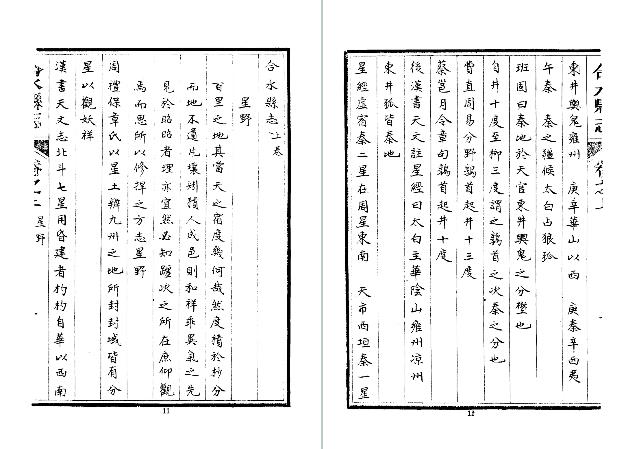 合水縣志上卷
星野
百里之地其當天之宿度幾何哉然度積於抄分
而地不遺片壤矧積人成邑則和祥乖異氣之先
見於昭昭者理亦宜然必知躔次之所在庶仰觀
焉而思所以修禳之方志星野
周禮保章氏以星土辨九州之地所封封域皆有分
星以觀妖祥
漢書天文志北斗七星用昏建者杓杓自華以西南
合水縣志
卷之上
星野
11
合水縣志
卷之上
東井輿鬼雍州 庚辛華山以西 庚秦辛西夷
午秦 秦之疆候太白占狼弧
班固曰秦地於天官東井輿鬼之分壄也
自井十度至柳三度謂之鶉首之次秦之分也
費直周易分野鶉首起井十二度
蔡邕月令章句鶉首起井十度
後漢書天文註星經曰太白主華陰山雍州涼州
東井弧皆秦地
星經虛宿秦二星在周星東南 天市西垣秦一星
12